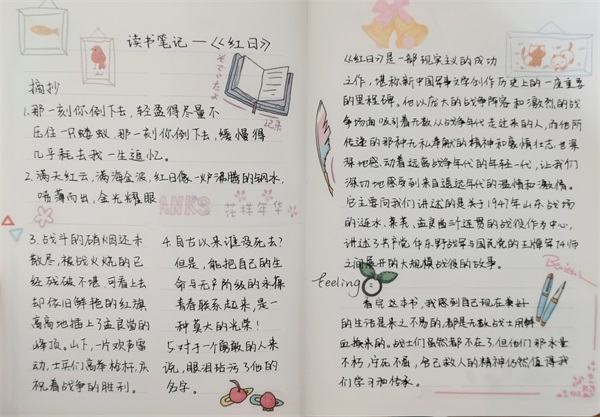 读书笔记—《红日》
摘抄
1.那一刻你倒下去,轻盈得尽量不
压住一只蝼蚁,那一刻你倒下去,缓慢得
几乎耗去我一生追忆。
2.满天红云,满海金波,红日像一炉沸腾的钢水,
喷薄而出,金光耀眼
THANKS
花样年华
记录
3.战斗的硝烟还未
散尽,被战火烧的已
经残破不堪,可看上去
却依旧鲜艳的红旗
高高地插上了孟良崮的
峰顶。山下,一片欢声雷
动,士兵们高举枪杆,庆
祝着战争的胜利。
4.自古以来谁没死去?
但是,能把自己的生
命与无产阶级的永葆
青春联系起来,是一
种莫大的光荣!
5.对于一个勇敢的人来
说,眼泪玷污了他的
名字。
《红日》是一部现实主义的成功
之作,堪称新中国军事文学创作历史上的一座重要
的里程碑。他以庞大的战争阵容和激烈的战
争场面吸引着无数从战争年代走过来的人,而他所
传递的那种无私奉献的精神和豪情壮志,也深
深地感动着远离战争年代的年轻一代,让我们
深切地感受到来自遥远年代的温情和激情。
它主要向我们讲述的是关于1947年山东战场
的涟水、莱芜、孟良崮三个连贯的战役作为中心,
讲述了共产党华东野战军与国民党的王牌军74师
之间展开的大规模战役的故事。
feeling
看完这本书,我感到自己现在美好
的生活是来之不易的,都是无数战士用鲜
血换来的。战士们虽然都不在了,但他们那永垂
不朽,宁死不屈,舍己救人的精神仍然值得我
们学习和传承。